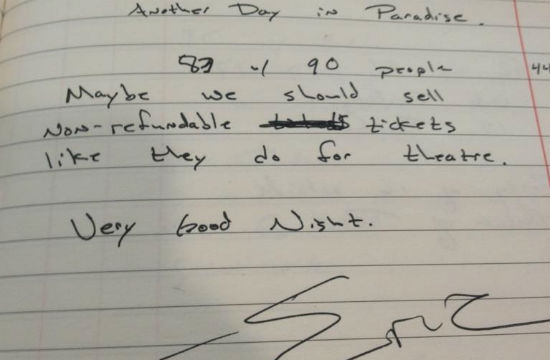 Another Day in Paradise.
83 of 90 people
44
Maybe we should sell
non-refundable tickets
like they do for theatre.
Very Good Night.